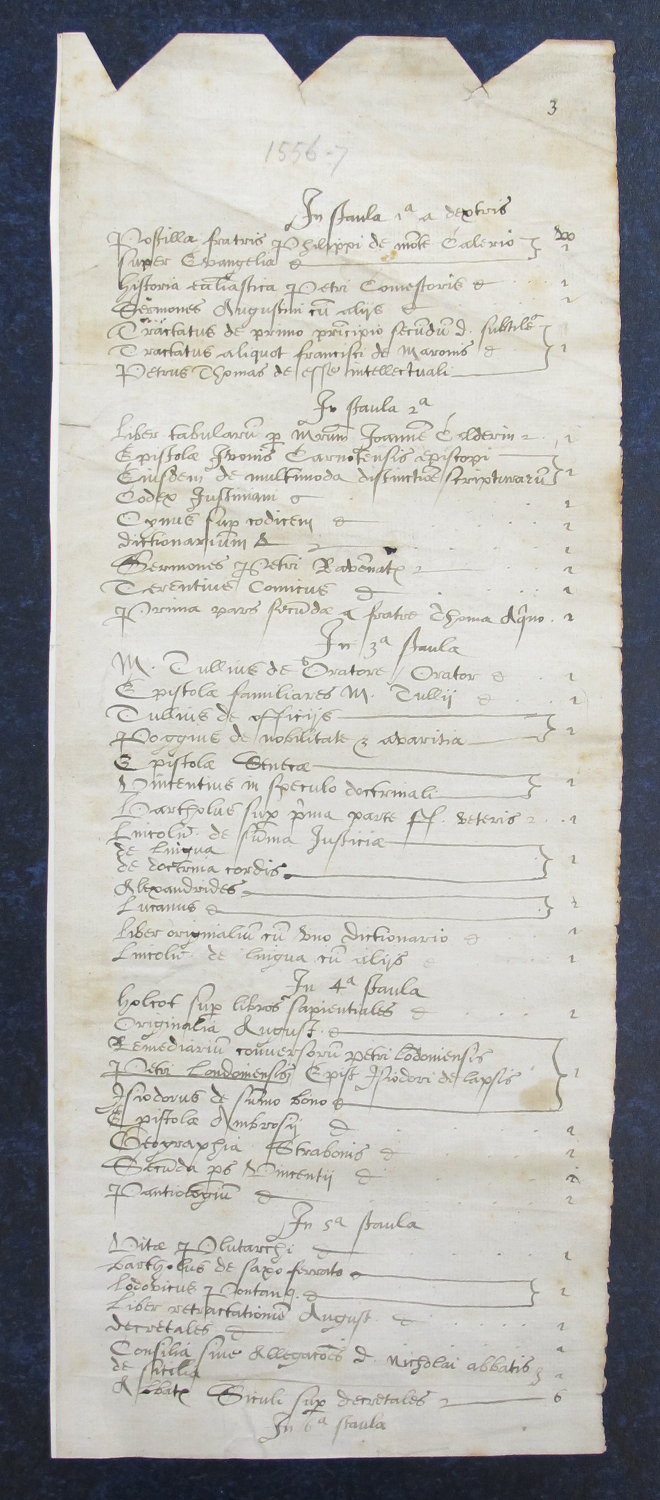 3
1556-7
In staula 1ª a dextris
Postillæ fratris Philippi de mōte Calerio
super Evangelia
historia eccl̄iastica Petri Comestoris 1
Sermones Augustini cū alijs 1
Tractatus de primo prīcipio secūdū d. subtilē
Tractatus aliquot francisci de Maronis 1
Petrus Thomas de esse intellectuali
In staula 2ª
Liber tabularū p Joannē Calderin 1
Epistolæ Ivonis Carnotensis episcopi
Eiusdem de multimoda distinctiōe scripturarū 1
Codex Justiniani 1
Cynus sup codicem 1
dictionarium 1
Sermones Petri Ravēnat 1
Terentius Comicus 1
Prima pars secūdæ a fratre Thoma Aqūo 1
In 3ª staula
M. Tullius de Oratore Orator 1
Epistolæ familiares M. Tullij 1
Tullius de officijs
Poggius de nobilitate & avaritia 1
Epistolæ Senecæ
Vincentius in speculo doctrinali 1
Bartholus sup p̄ma parte ff. veteris 1
Lincolū de sūma Justicia
de Lingua 1
de doctrina cordis
Alexandrides
Lucanus 1
Liber originaliū cū vno dictionario 1
Lincolū de lingua cū alijs 1
In 4ª staula
holcot sup libros sapientiales 1
Originalia August.
Remediariū conversorū petri lōdoniensis
Petri Londoniensis Epist Isiodori de lapsis 1
Isiodorus de sūmo bono
Epistolæ Ambrosij 1
Geographia Strabonis 1
Secūda ps Vincentij 1
Pantiologiū 1
In 5ª staula
Vitæ Plutarchi 1
Bartholus de saxo ferrato
Lodovicus Pontan 1
Liber retractationū August. 1
decretales 1
Consilia sive Allegacōes d. Nicholai abbatis
de Sicilia 1
Abbat Siculi sup decretales 6
In 6ª staula